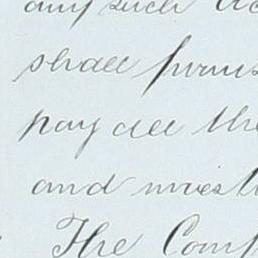 any such
shall furnis
pay all the
and invest
The Comp